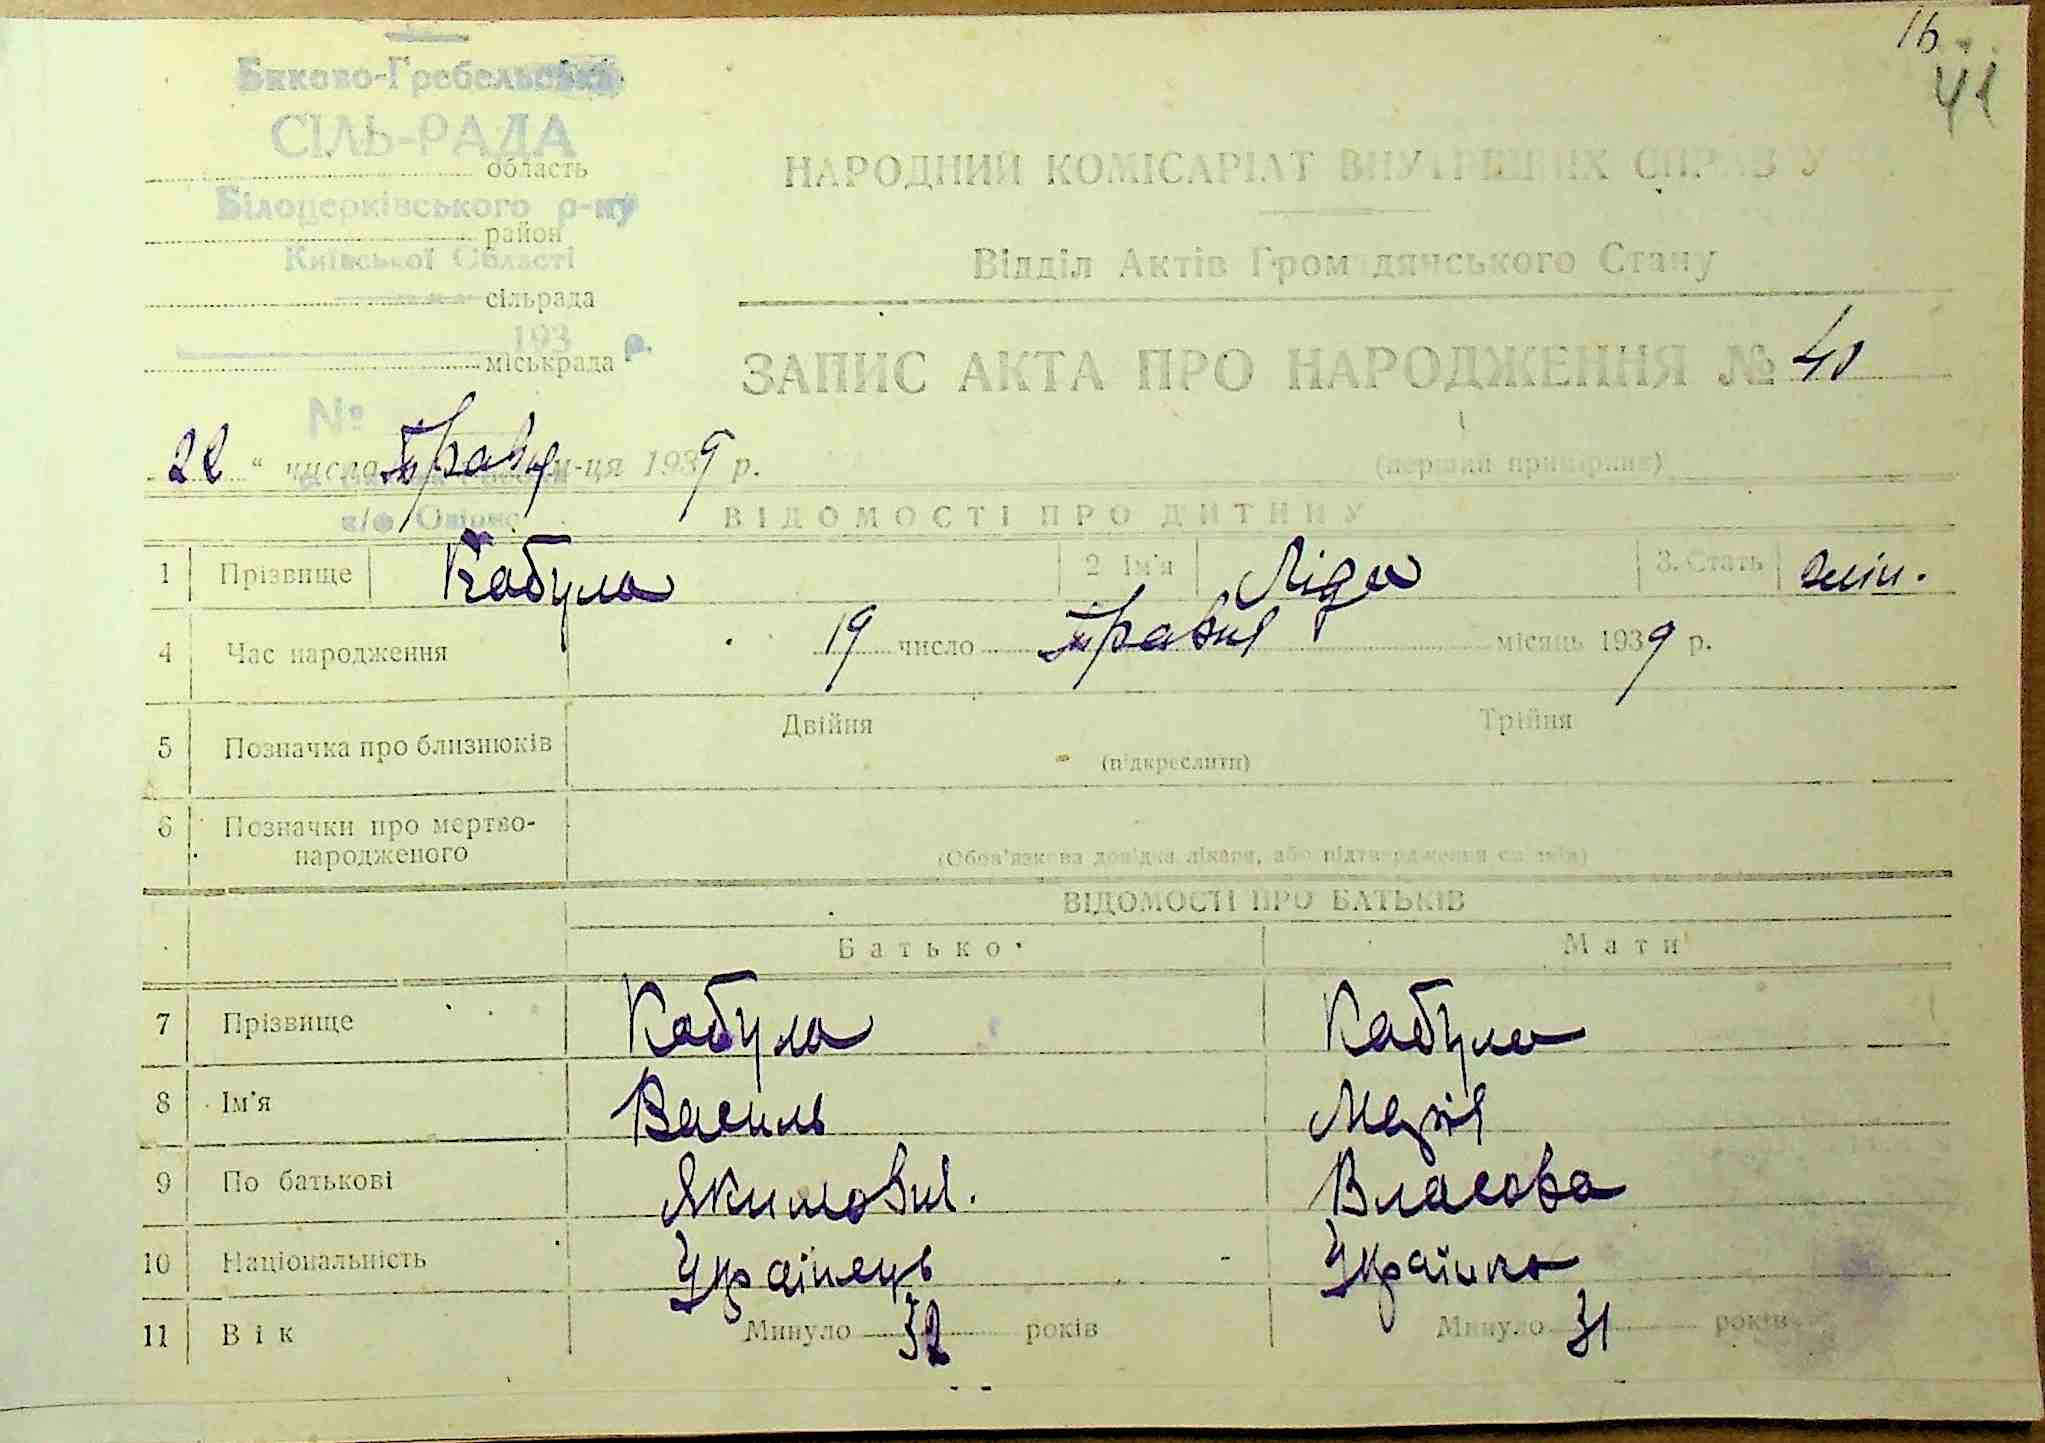 16
41
Биково-Гребельська
СІЛЬ-РАДА
область
Білоцерківського р-ну
район
Київської Області
сільрада
193 р.
міськрада
№
НАРОДНИЙ КОМІСАРІАТ ВНУТРІШНІХ СПРАВ У
Відділ Актів Громадянського Стану
ЗАПИС АКТА ПРО НАРОДЖЕННЯ № 40
22 " число Травня м-ця 1939 р.
(перший примірник)
ВІДОМОСТІ ПРО ДИТИНУ
1 Прізвище Кабула 2 Ім'я Ліда 3. Стать жін.
4 Час народження 19 число Травня місяць 1939 р.
5 Позначка про близнюків Двійня Трійня
(підкреслити)
6 Позначки про мертво-
народженого
(Обов'язкова довідка лікаря, або підтвердження свідків)
ВІДОМОСТІ ПРО БАТЬКІВ
Батько Мати
7 Прізвище Кабула Кабула
8 Ім'я Василь Марія
9 По батькові Якимович. Власова
10 Національність Українець Українка
11 Вік Минуло 32 років Минуло 31 років